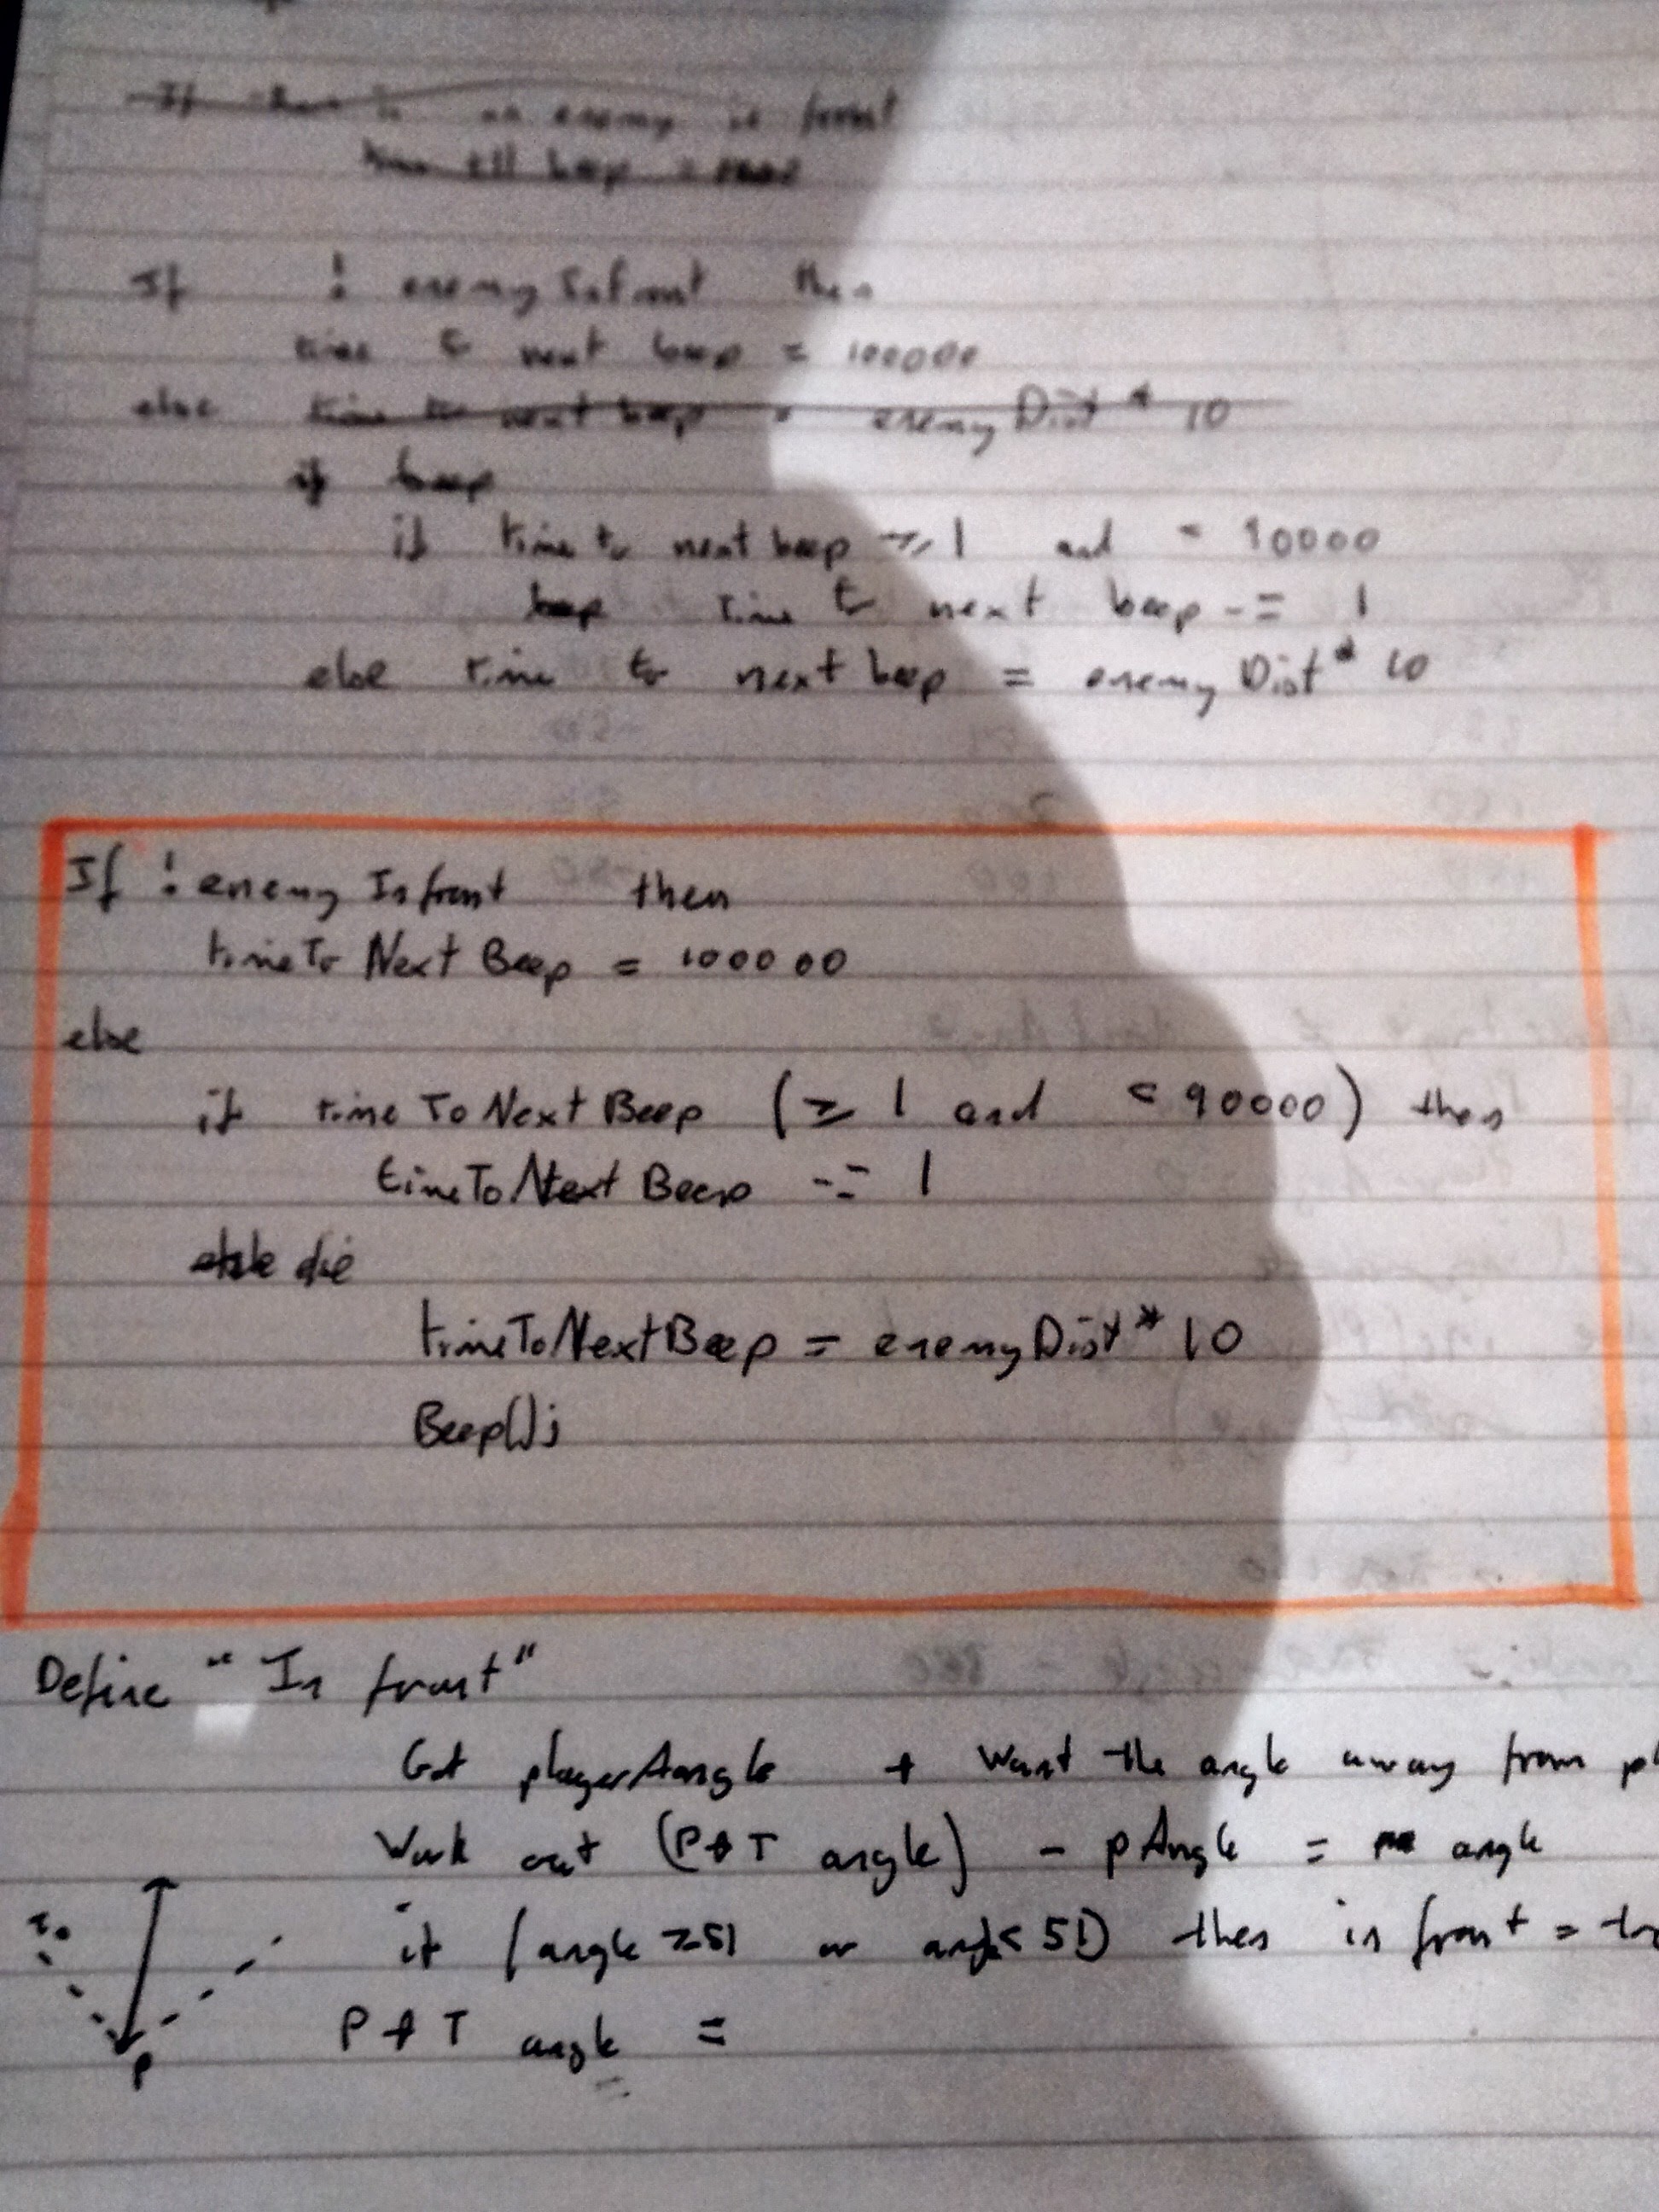 If there is an enemy in front
time till beep =
If ! enemyInfront then
time to next beep = 100000
else time to next beep = enemyDist * 10
if beep
if time to next beep >/ 1 and < 90000
beep time to next beep -= 1
else time to next beep = enemyDist * 10
If ! enemyInfront then
timeToNextBeep = 100000
else
if timeToNextBeep (≥ 1 and < 90000) then
timeToNextBeep -= 1
else
timeToNextBeep = enemyDist * 10
Beep();
Define "In front"
Get playerAangle + Want the angle away from pl
Work out (P+T angle) - pAngle = angle
if (angle ≥51 or angle< 51) then in front = tr
T
P
P+T angle =